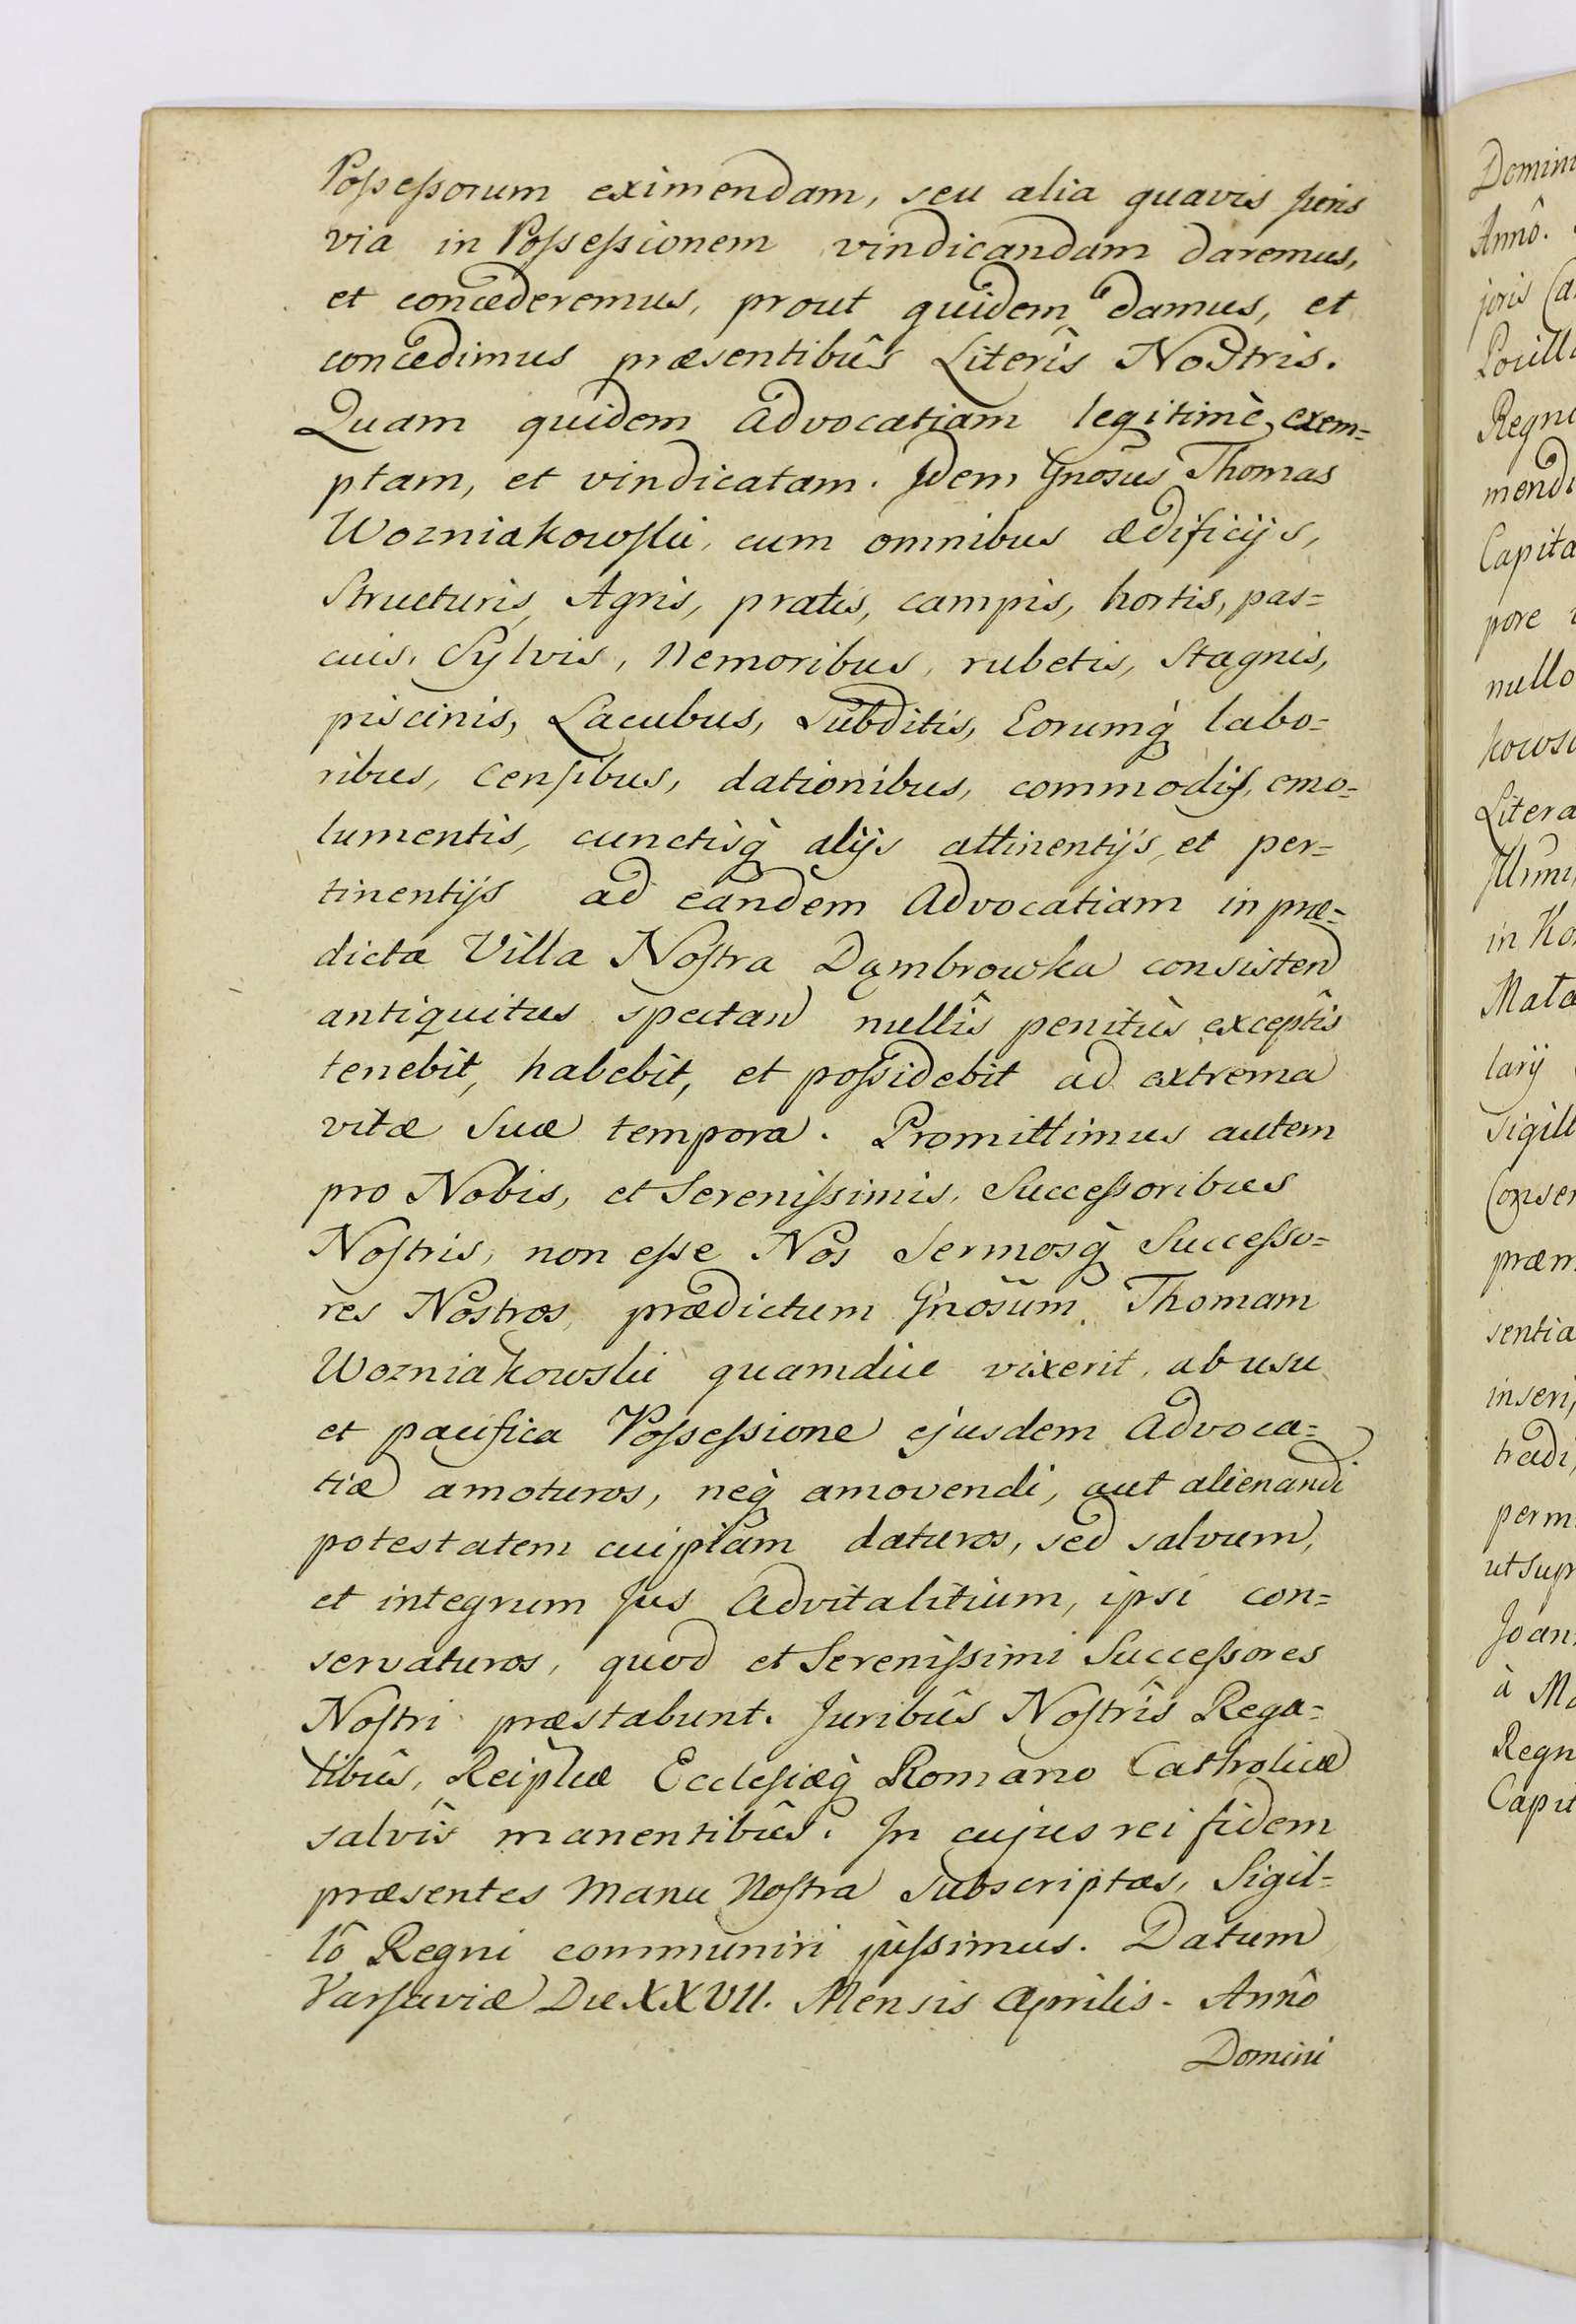 Poſseſsorum eximendam, seu alia quavis Juris
via in Poſseſsionem vindicandam daremus,
et concederemus, prout quidem damus, et
concedimus præsentibûs Literîs Nostris.
Quam quidem Advocatiam legitimè exem=
ptam, et vindicatam. Idem Gnosus Thomas
Wozniakowſki, cum omnibus ædificijs,
Structuris, Agris, pratis, campis, hortis, pas=
cuis, Sylvis, Nemoribus, rubetis, Stagnis,
piscinis, Lacubus, Subditis, Eorumq̀ labo=
ribus, Cenſibus, dationibus, commodiſ, emo=
lumentis, cunctisq̀ alijs attinentijs, et per=
tinentijs ad eandem Advocatiam in præ=
dicta Villa Noſtra Dąmbrowka consisten
antiquitus spectan nullîs penitùs exceptîs
tenebit, habebit, et poſsidebit ad extrema
vitæ Suæ tempora. Promittimus autem
pro Nobis, et Sereniſsimis, Succeſsoribus
Noſtris, non eſse Nos Sermosq̀ Succeſso=
res Nostros, prædictum Gnosum Thomam
Wozniakowski quamdiu vixerit, ab usu
et pacifica Poſseſsione ejusdem Advoca=
tiæ amoturos, neq̀ amovendi, aut alienandi
potestatem cuipiam daturos, sed salvum,
et integrum Jus Advitalitium, ipsi con=
servaturos, quod et Sereniſsimi Succeſsores
Noſtri præstabunt. Juribûs Noſtrîs Rega=
libûs, Reiplicæ Eccleſiæq̀ Romano Catholicæ
salvîs manentibûs. In cujus rei fidem
præsentes Manu Noſtra Subscriptas, Sigil=
lô Regni communiri juſsimus. Datum
Varſaviæ Die XXVII. Mensis Aprilis. Annô
Domini
Domin
Annô.
joris Ca
Regn
mend
Capita
pore
nullo
kows
Litera
in Ko
Mala
larij
Sigill
Conse
præm
sentia
inseri,
tradi,
perm
ut Supr
Joan
à Ma
Regn
Capit